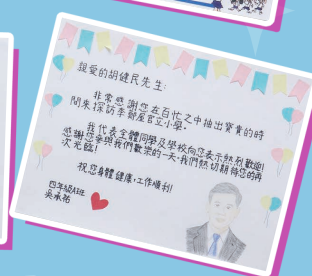 親愛的胡健民先生:
非常感謝您在百忙之中抽出寶貴的時
間來探訪李鄭屋官立小學。
我代表全體同學及學校向您表示熱烈歡迎!
感謝您參與我們歡樂的一天,我們熱切期待您的再
次光臨!
祝您身體健康,工作順利!
四年級A班
吳承祐